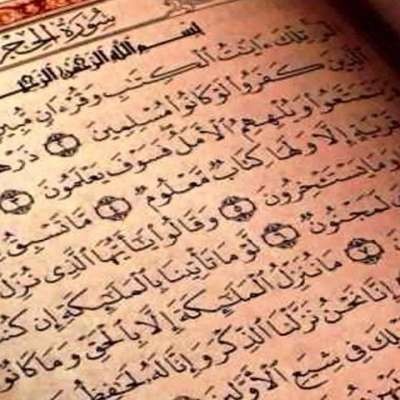 سُورَةُ الحِجْرِ
بِسْمِ اللَّهِ الرَّحْمَٰنِ الرَّحِيمِ
الٓر تِلْكَ ءَايَٰتُ ٱلْكِتَٰبِ وَقُرْءَانٍ مُّبِينٍ
ٱلَّذِينَ كَفَرُوا۟ لَوْ كَانُوا۟ مُسْلِمِينَ ٢ ذَرْهُمْ
وَيَتَمَتَّعُوا۟ وَيُلْهِهِمُ ٱلْأَمَلُ فَسَوْفَ يَعْلَمُونَ ٣
قَرْيَةٍ إِلَّا وَلَهَا كِتَابٌ مَّعْلُومٌ ٤ مَّا تَسْبِقُ
وَمَا يَسْتَـْٔخِرُونَ ٥ وَقَالُوا۟ يَٰٓأَيُّهَا ٱلَّذِى نُزِّلَ
لَمَجْنُونٌ ٦ لَّوْ مَا تَأْتِينَا بِٱلْمَلَٰٓئِكَةِ إِن كُنتَ
٧ مَا نُنَزِّلُ ٱلْمَلَٰٓئِكَةَ إِلَّا بِٱلْحَقِّ وَمَا كَانُوٓا۟
إِنَّا نَحْنُ نَزَّلْنَا ٱلذِّكْرَ وَإِنَّا لَهُۥ لَحَٰفِظُونَ
فِى شِيَعِ ٱلْأَوَّلِينَ